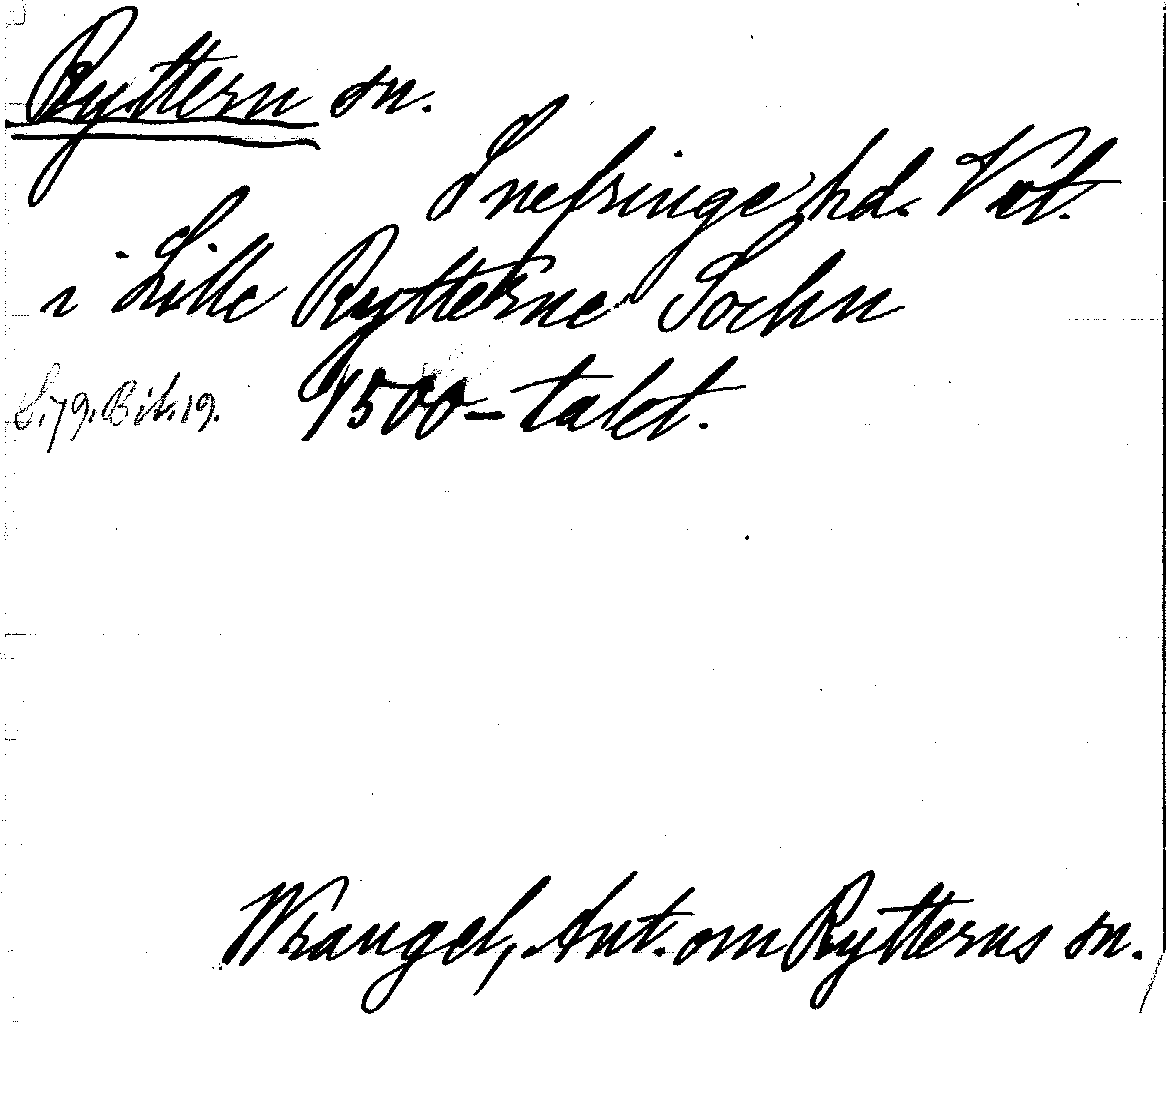 Ryttern sn.
Snefringe hd. Vstm.
i Lille Rytterne Sochn
S. 79. Bil. 19. 1500-talet.
Wrangel, Ant. om Rytterns sn.